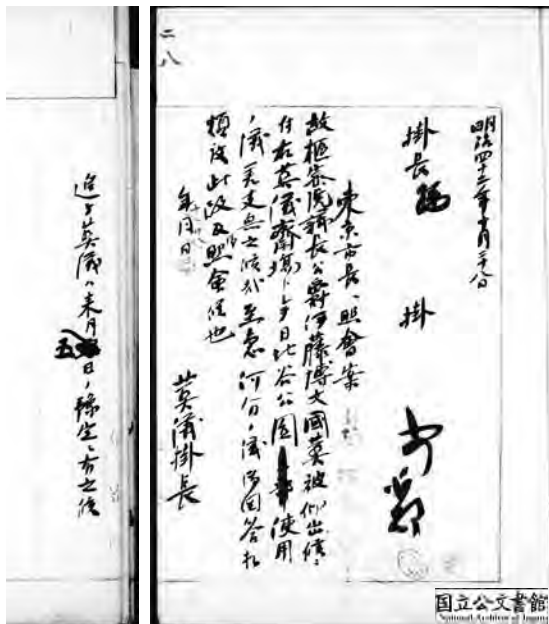 二八
明治四十二年十月二十八日
掛長
掛
東京市長ヘ照會案
故樞密院議長公爵伊藤博文國葬被仰出候ニ
付右葬儀齋場トシテ日比谷公園使用
ノ儀差支無之候哉至急何分ノ儀御回答相
煩度此段及照會候也
年月日
葬儀掛長
追テ葬儀ハ来月五日ノ豫定ニ有之候
国立公文書館
National Archives of Japan